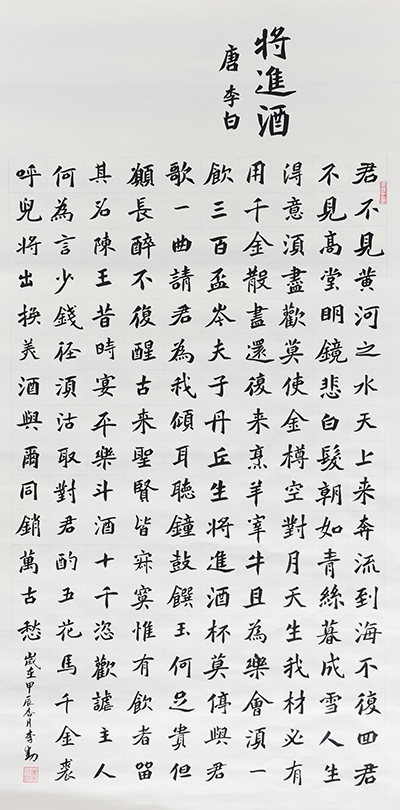 將進酒
唐 李白
君不見黃河之水天上来奔流到海不復回君
不見高堂明鏡悲白髮朝如青絲暮成雪人生
得意須盡歡莫使金樽空對月天生我材必有
用千金散盡還復来烹羊宰牛且為樂會須一
飲三百盃岑夫子丹丘生將進酒杯莫停與君
歌一曲請君為我傾耳聽鐘鼓饌玉何足貴但
願長醉不復醒古来聖賢皆寂寞惟有飲者留
其名陳王昔時宴平樂斗酒十千恣歡謔主人
何為言少錢徑須沽取對君酌五花馬千金裘
呼兒將出換美酒與爾同銷萬古愁
歲在甲辰杏月李